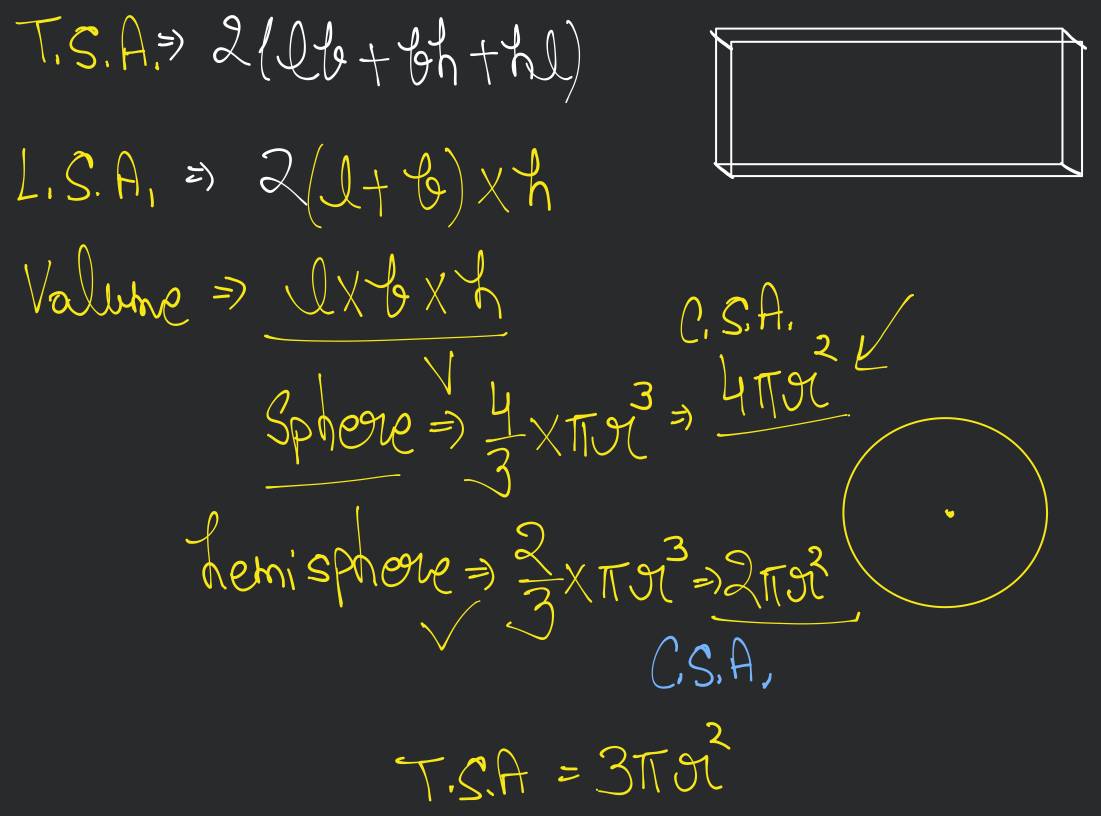 T.S.A. => 2(lb + bh + hl)
L.S.A. => 2(l + b) × h
Volume => l × b × h
C.S.A.
V
Sphere => 4/3 × πr³ => 4πr²
hemisphere => 2/3 × πr³ => 2πr²
C.S.A.
T.S.A = 3πr²